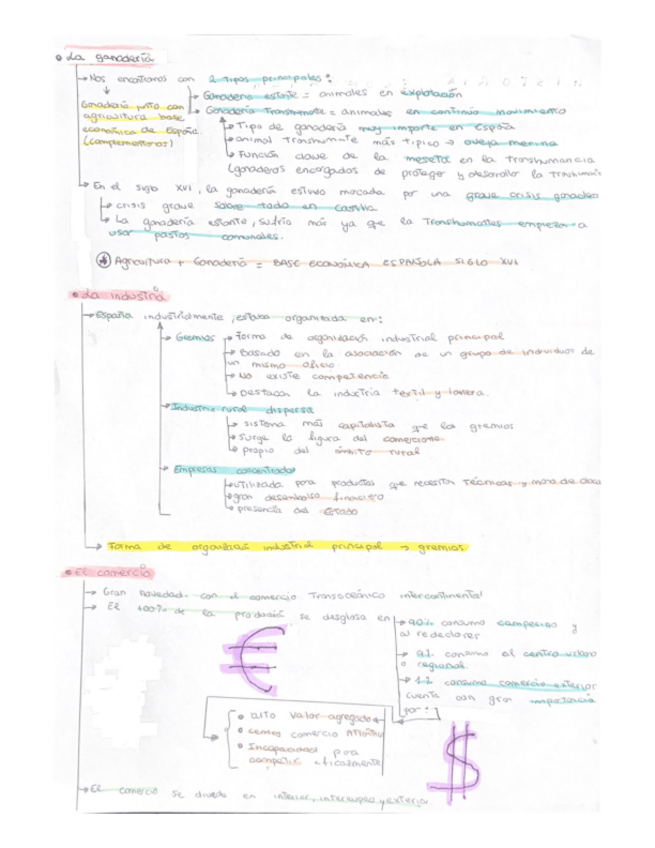 La ganadería
Nos encontramos con 2 tipos principales:
Ganadería estante = animales en explotación
Ganadería junto con
agricultura base
económica de España.
(complementarios)
Ganadería Transhumante = animales en continuo movimiento
Tipo de ganadería muy importe en España
animal Transhumante más típico → oveja merina
Función clave de la meseta en la Transhumancia
(ganaderos encargados de proteger y desarrollar la
En el siglo XVI, la ganadería estuvo marcada por una grave crisis
crisis grave sobre todo en Castilla
La ganadería estante, sufrió más ya que la Transhumantes empezara a
usar pastos comunales.
Agricultura + Ganadería = BASE ECONÓMICA ESPAÑOLA SIGLO XVI
La industria
España industrialmente, estaba organizada en:
Gremios
Forma de organización industrial principal
Basado en la asociación de un grupo de individuos de
un mismo oficio
No existe competencia
Destacan la industria textil y lanera.
Industria rural dispersa
sistema más capitalista que los gremios
surge la figura del comerciante
propio del ámbito rural
Empresas concentradas
utilizada para productos que necesitan Técnicas y mano de
gran desembolso financiero
presencia del Estado
Forma de industrial principal → gremios
El comercio
Gran novedad. con el comercio Transoceánico intercontinental
El 100% de la se desglosa en
90% consumo campesino y
alrededores
9% consumo al centro urbano
o regional.
1% consumo comercio exterior
cuenta con gran importancia
por:
alto valor agregado
centro comercio
Incapacidad para
competir eficazmente
El comercio se divide en interior, y exterior
€
$